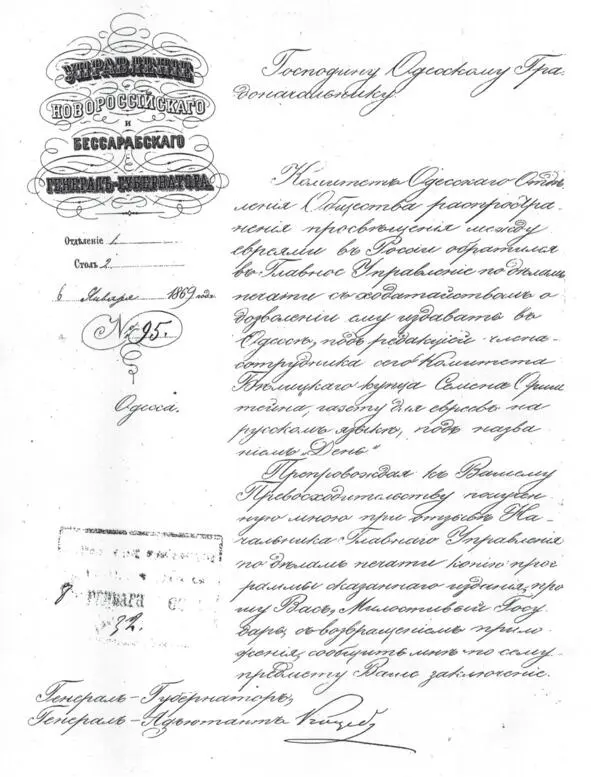 УПРАВЛЕНІЕ
НОВОРОССІЙСКАГО
И
БЕССАРАБСКАГО
ГЕНЕРАЛЪ-ГУБЕРНАТОРА.
Отдѣленіе 1
Столъ 2
6 Января 1869 года
№ 95.
Одесса.
Господину Одесскому Гра-
доначальнику.
Комитетъ Одесскаго Отдѣ-
ленія Общества распростра-
ненія просвѣщенія между
евреями въ Россіи обратился
въ Главное Управленіе по дѣламъ
печати съ ходатайствомъ о
дозволеніи ему издавать въ
Одессѣ, подъ редакціей члена-
сотрудника сего Комитета
купца Семена Орнш-
тейна, газету для евреевъ на
русскомъ языкѣ, подъ назва-
ніемъ „День“
Препровождая къ Вашему
Превосходительству получен-
ную мною при отзывѣ На-
чальника Главнаго Управленія
по дѣламъ печати копію прог-
раммы сказаннаго изданія, про-
шу Васъ, Милостивый Госу-
дарь, съ возвращеніемъ прило-
женія, сообщить мнѣ по сему
предмету Ваше заключеніе.
8
32.
Генералъ-Губернаторъ,
Генералъ-Адъютантъ Коцебу